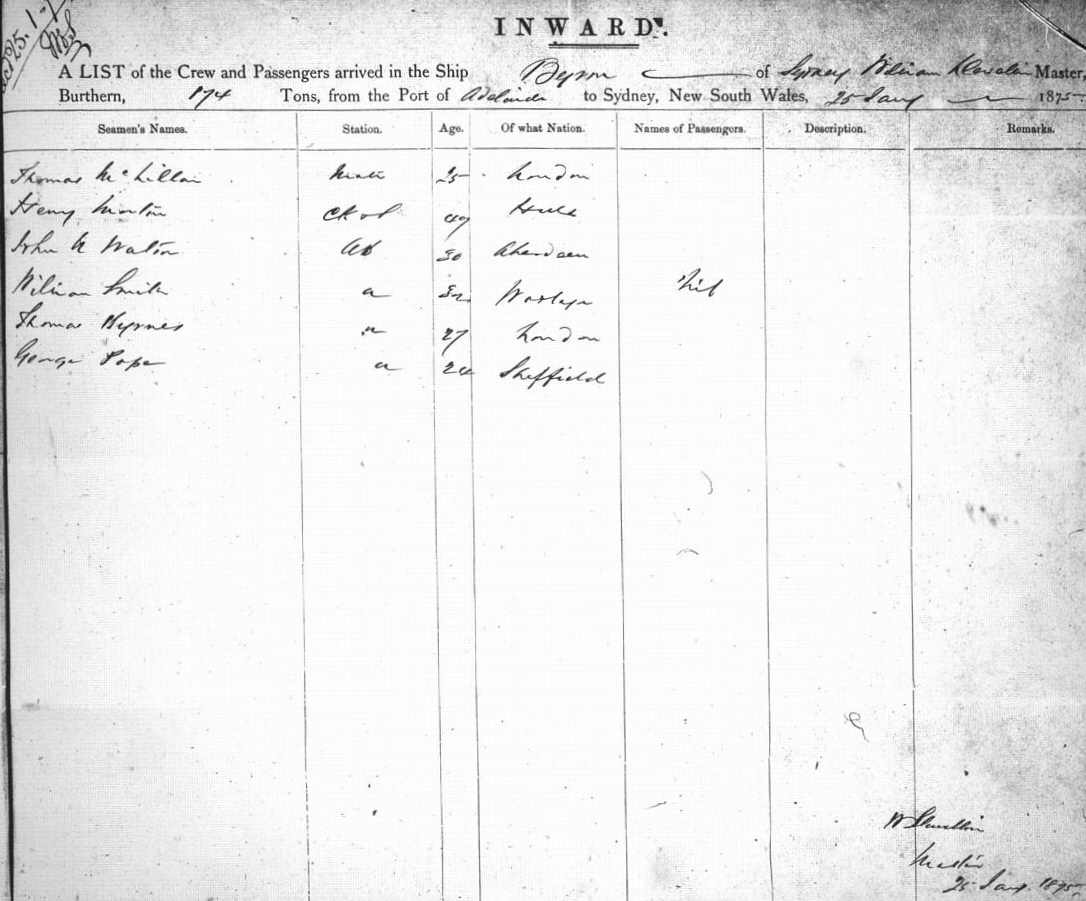 INWARD.
A LIST of the Crew and Passengers arrived in the Ship Byron of Sydney William Master,
Burthern, 174 Tons, from the Port of Adelaide to Sydney, New South Wales, 25 Jany 1875
Seamen's Names. Station. Age. Of what Nation. Names of Passengers. Description. Remarks.
Thomas Mate 25 London
Henry Morton Ck & S 49 Hull
John Watson AB 30 Aberdeen
William Smith " 32 Nil
Thomas Byrnes " 27 London
George Pope " 24 Sheffield
W
Master
25 Jany. 1875